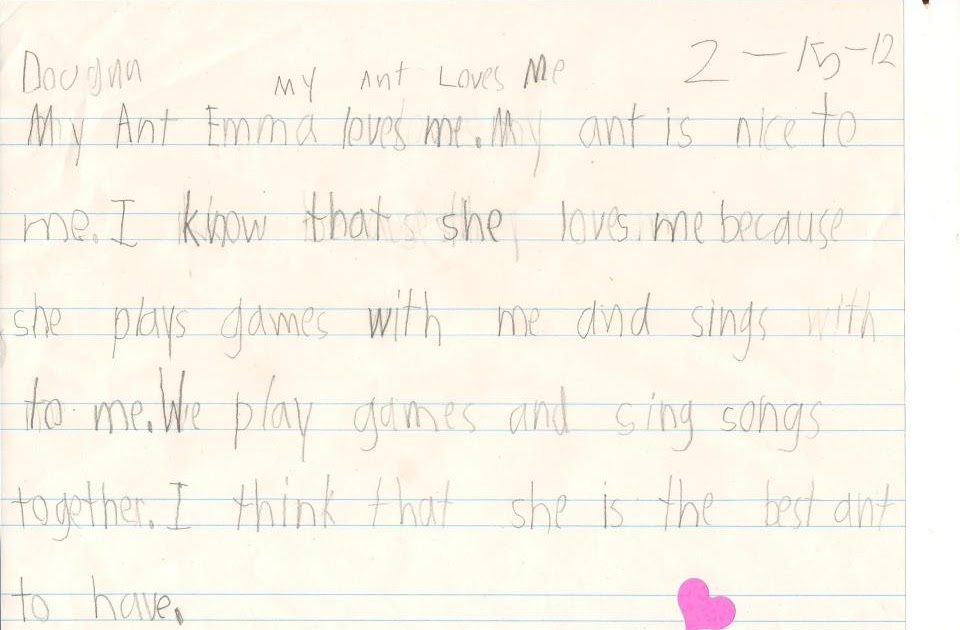 Dougnn My Ant Loves Me 2-15-12
My Ant Emma loves me. My ant is nice to
me. I know that she loves me because
she plays games with me and sings with
to me. We play games and sing songs
together. I think that she is the best ant
to have.